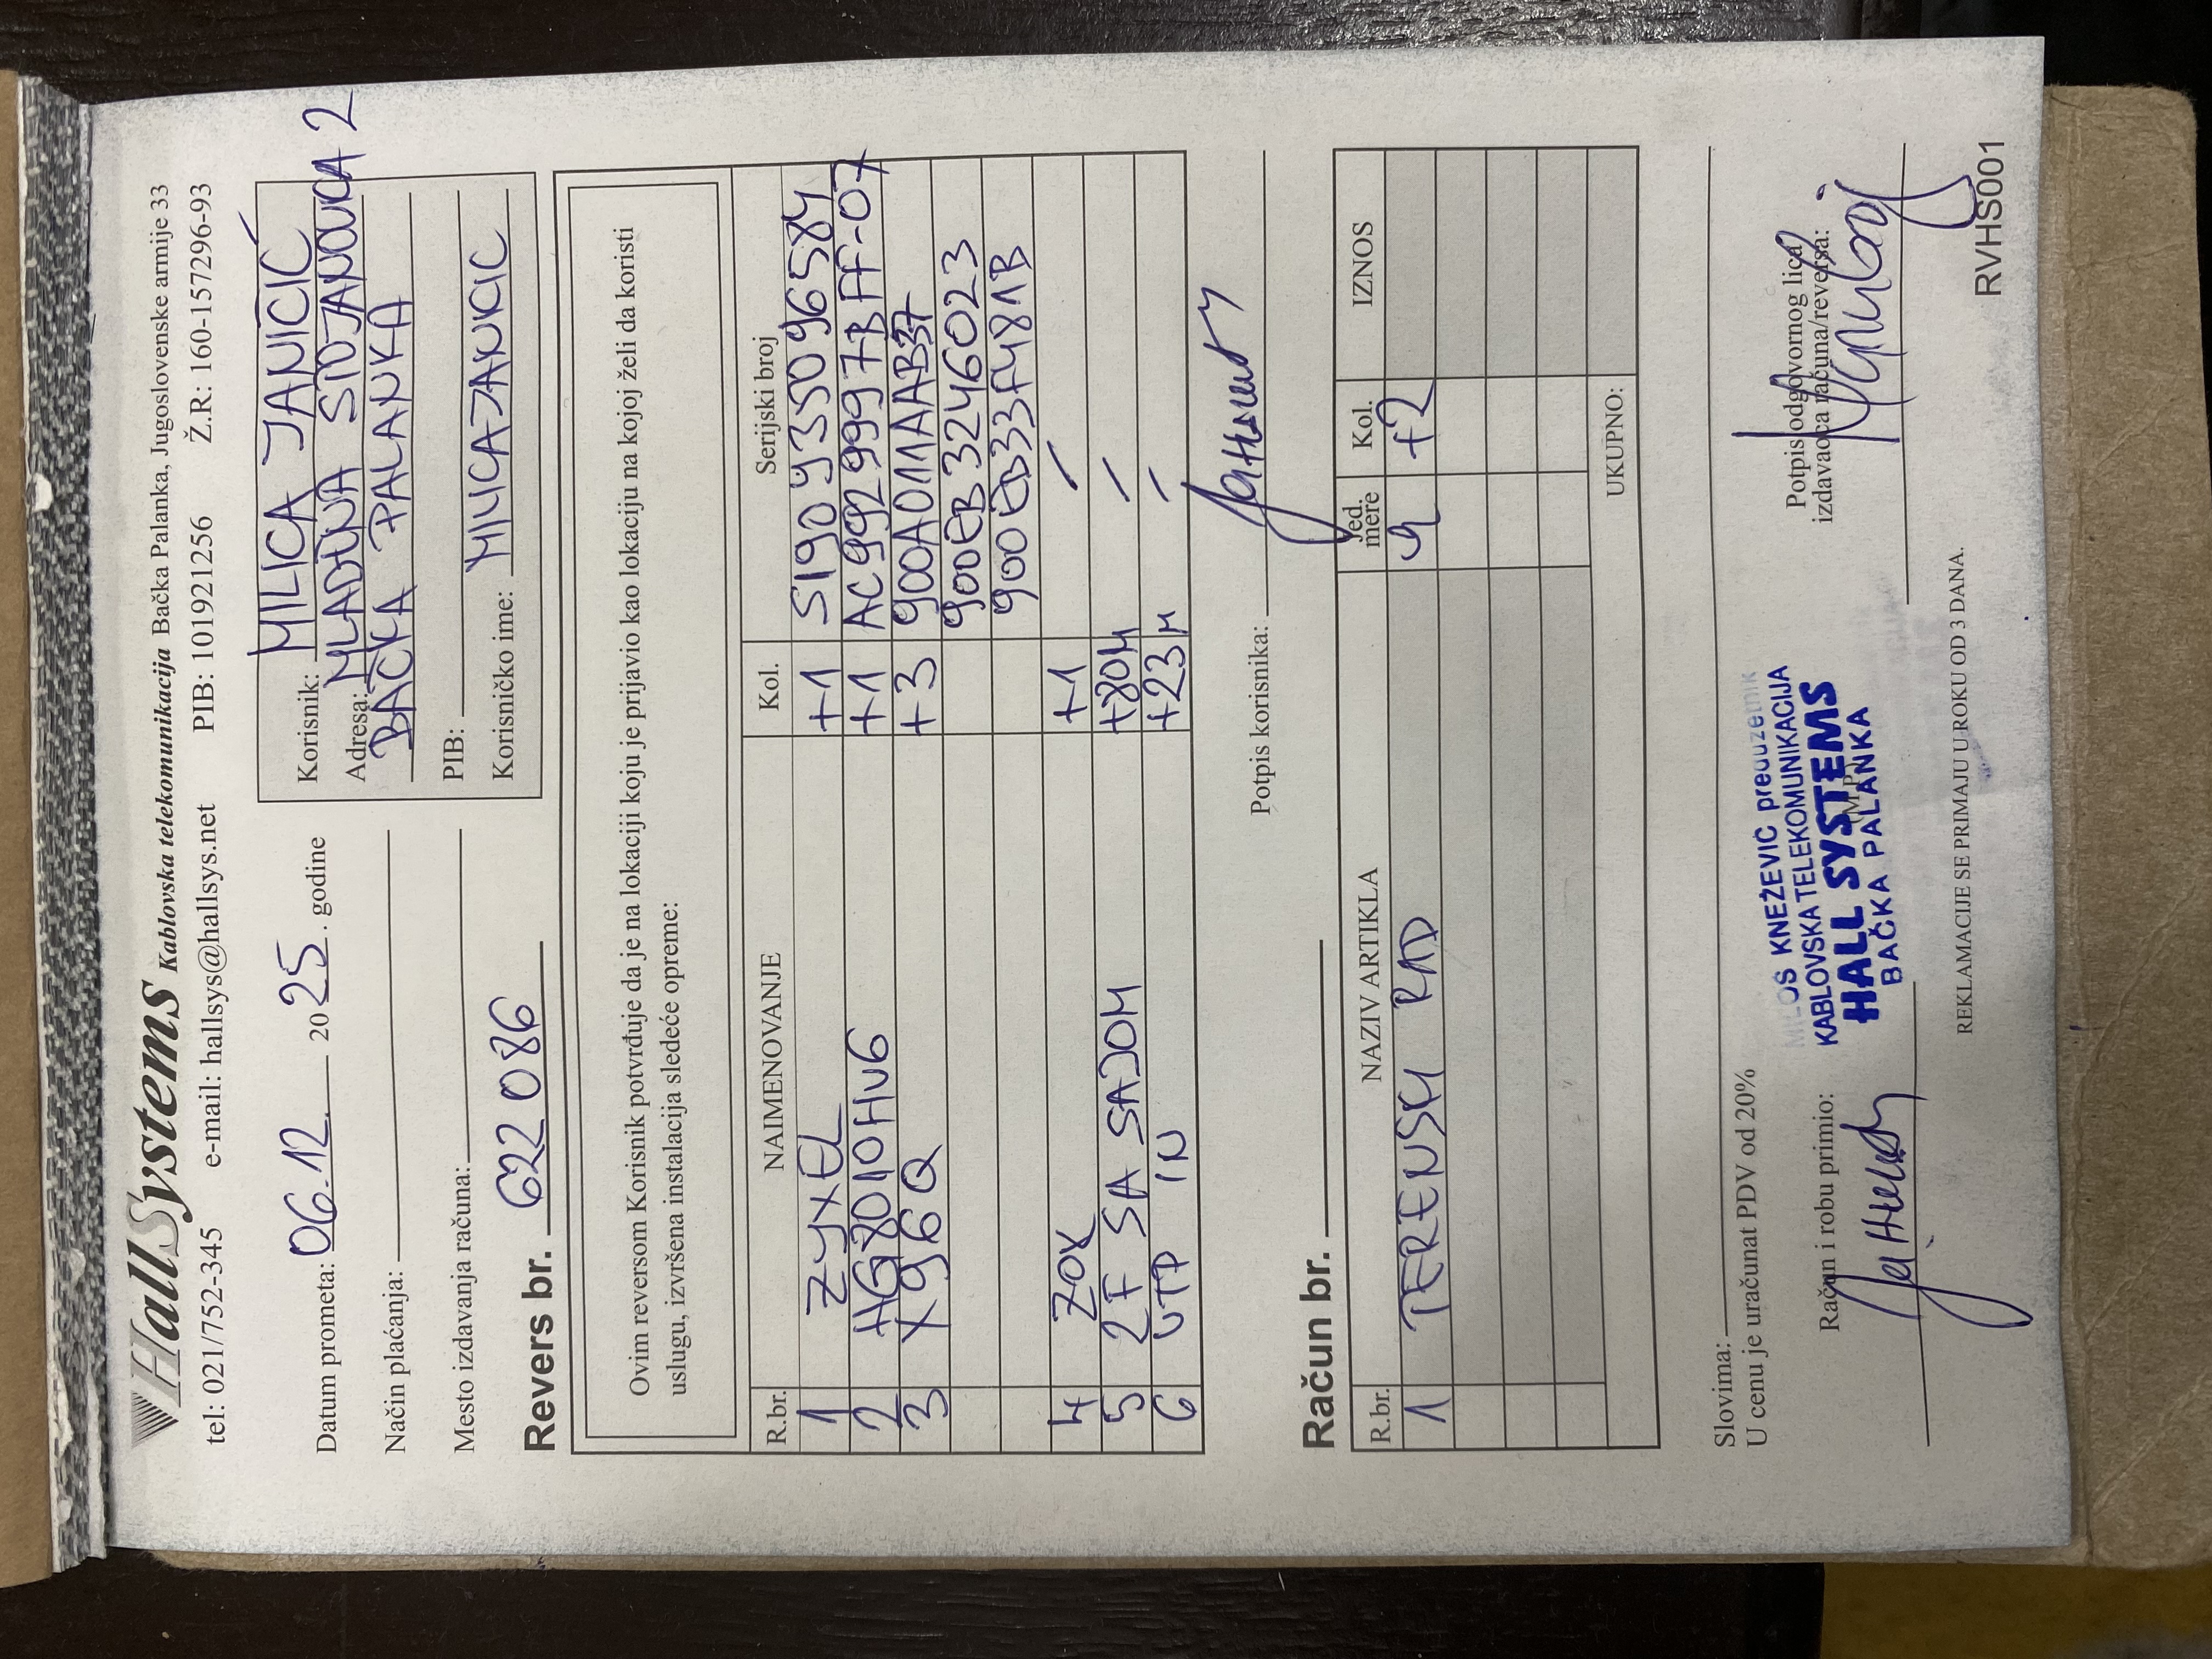 HallSystems Kablovska telekomunikacija Bačka Palanka, Jugoslovenske armije 33
tel: 021/752-345 e-mail: hallsys@hallsys.net PIB: 101921256 Ž.R.: 160-157296-93
Datum prometa: 06.12. 2025. godine
Način plaćanja:
Mesto izdavanja računa:
Korisnik: MILICA JANIČIĆ
Adresa: MLADENA STOJANOVIĆA 2
BAČKA PALANKA
PIB:
Korisničko ime: MILICAJANICIC
Revers br. 622086
Ovim reversom Korisnik potvrđuje da je na lokaciji koju je prijavio kao lokaciju na kojoj želi da koristi
uslugu, izvršena instalacija sledeće opreme:
R.br. NAIMENOVANJE Kol. Serijski broj
1 ZYXEL +1 S190Y35096584
2 HG8010Hv6 +1 AC9929997BFF-07
3 X96Q +3 900A011AAB37
900EB3246023
900EB33F481B
4 ZOX +1 /
5 2F SA SADOM +80M /
6 UTP IN +23M /
Potpis korisnika:
Račun br.
R.br. NAZIV ARTIKLA Jed. mere Kol. IZNOS
1 TERENSKI RAD +2
UKUPNO:
Slovima:
U cenu je uračunat PDV od 20%
Račun i robu primio:
MILOŠ KNEŽEVIĆ preduzetnik
KABLOVSKA TELEKOMUNIKACIJA
HALL SYSTEMS
BAČKA PALANKA
(M.P.)
Potpis odgovornog lica
izdavaoca računa/reversa:
REKLAMACIJE SE PRIMAJU U ROKU OD 3 DANA.
RVHS001